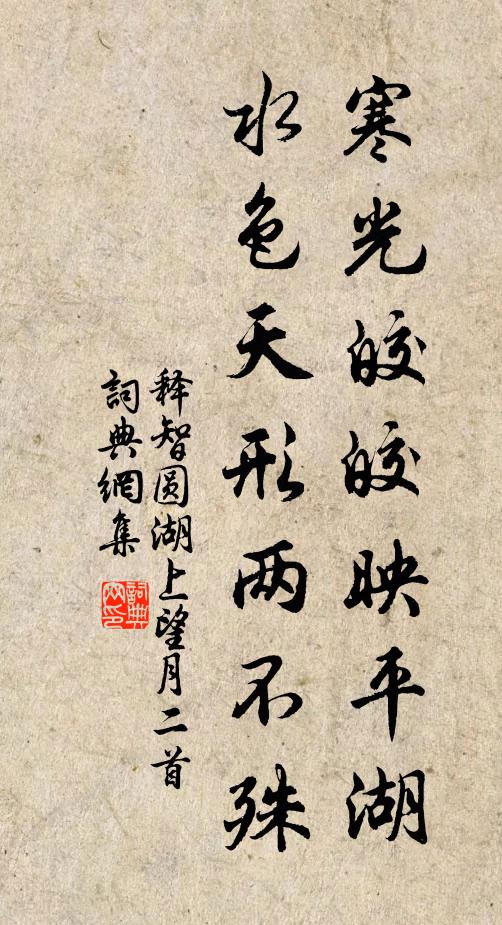 寒光皎皎映平湖
水色天形两不殊
释智圆湖上望月二首
詞典網集
詞典網印